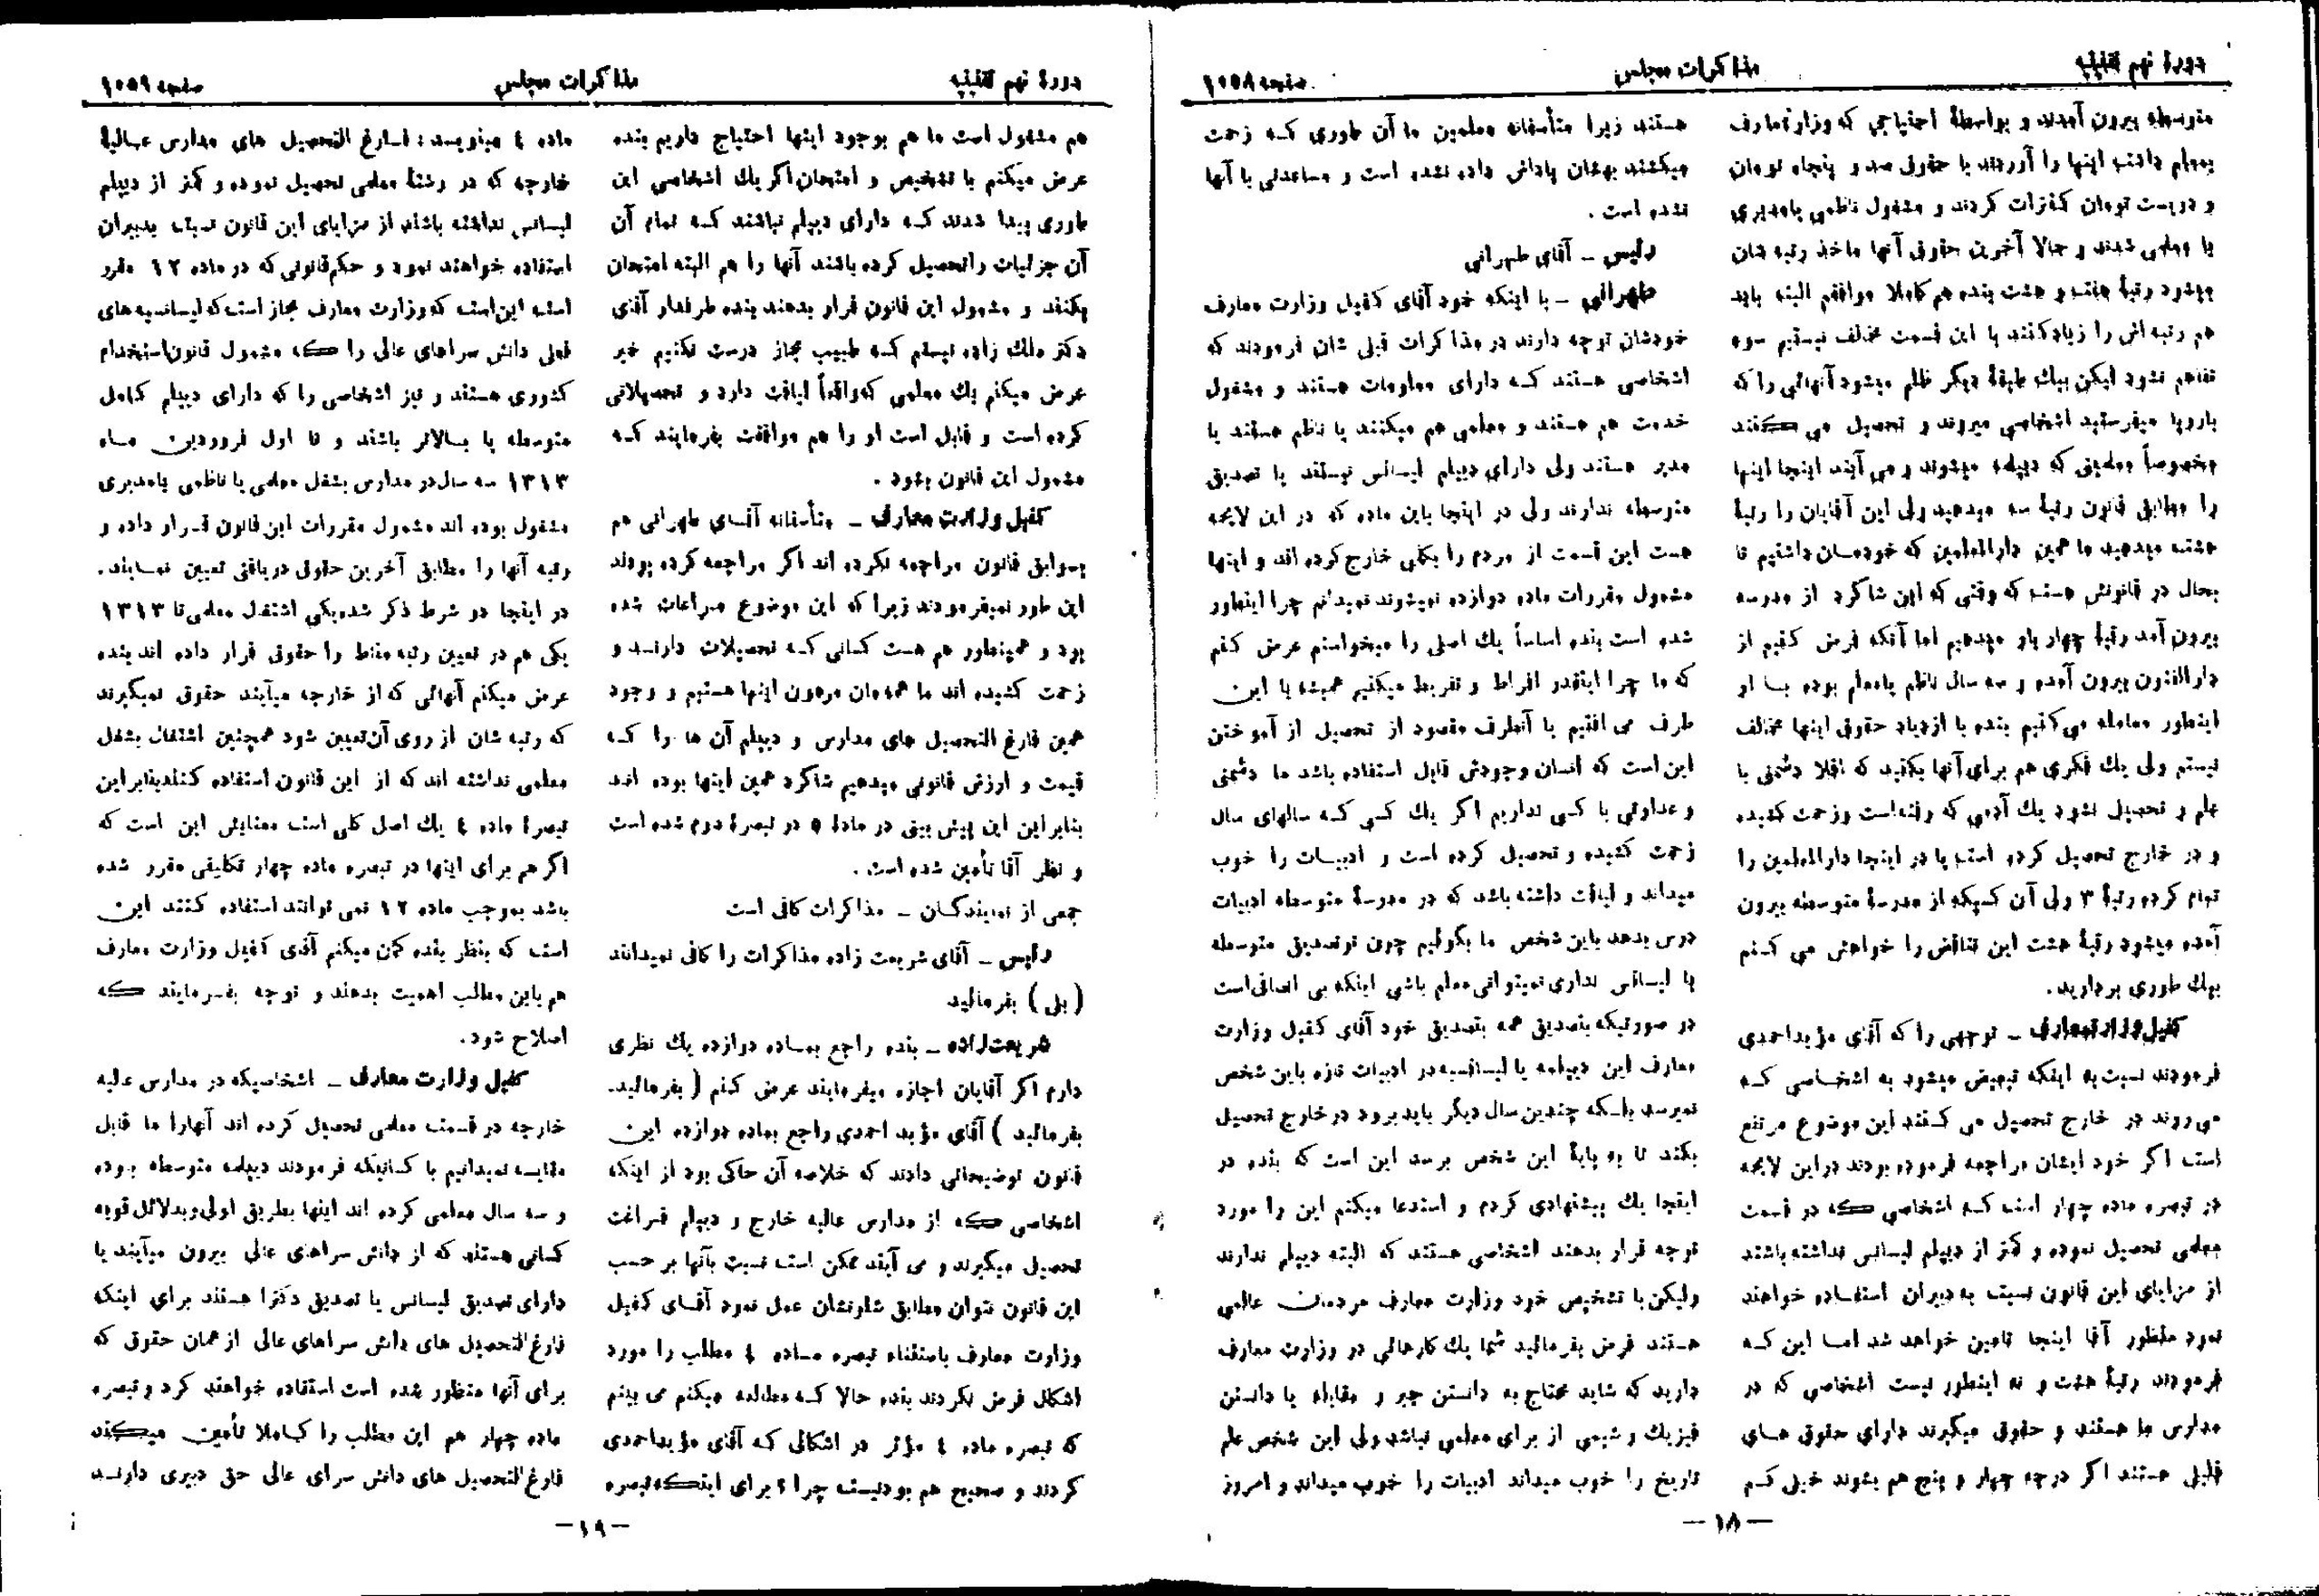 دورهٔ نهم تقنینیه
مذاکرات مجلس
صفحه ۱۰۵۸
متوسطه بیرون آمدند و بواسطهٔ احتیاجی که وزارتمعارف
بمعلم داشت اینها را آوردند با حقوق صد و پنجاه تومان
و دویست تومان کنترات کردند و مشغول ناظمی یا مدیری
یا معلمی شدند و حالا آخرین حقوق آنها ماخذ رتبه شان
میشود رتبهٔ هفت و هشت بنده هم کاملا موافقم البته باید
هم رتبه اش را زیاد کنند با این قسمت مخالف نیستیم سوء
تفاهم نشود لیکن بیك طبقهٔ دیگر ظلم میشود آنهائی را که
باروپا میفرستید اشخاصی میروند و تحصیل می کنند
مخصوصاً معلمینی که دیپلمه میشوند و می آیند اینجا اینها
را مطابق قانون رتبهٔ سه میدهید ولی این آقایان را رتبهٔ
هشت میدهید ما همین دارالمعلمین که خودمان داشتیم تا
بحال در قانونش هست که وقتی که این شاگرد از مدرسه
بیرون آمد رتبهٔ چهار باو میدهیم اما آنکه فرض کنیم از
دارالفنون بیرون آمده و سه سال ناظم یا معلم بوده با او
اینطور معامله می کنیم بنده با ازدیاد حقوق اینها مخالف
نیستم ولی یك فکری هم برای آنها بکنید که اقلا دشمنی با
علم و تحصیل نشود یك آدمی که رفته است و زحمت کشیده
و در خارج تحصیل کرده است یا در اینجا دارالمعلمین را
تمام کرده رتبهٔ ۳ ولی آن کسیکه از مدرسهٔ متوسطه بیرون
آمده میشود رتبهٔ هشت این تناقض را خواهش می کنم
بیك طوری بردارید.
کفیل وزارتمعارف ـ توجهی را که آقای مؤیداحمدی
فرمودند نسبت به اینکه تبعیض میشود به اشخاصی که
می روند در خارج تحصیل می کنند این موضوع مرتفع
است اگر خود ایشان مراجعه فرموده بودند در این لایحه
در تبصره ماده چهار است که اشخاصی که در قسمت
معلمی تحصیل نموده و کمتر از دیپلم لیسانس نداشته باشند
از مزایای این قانون نسبت به دبیران استفاده خواهند
نمود منظور آقا اینجا تامین خواهد شد اما این که
فرمودند رتبهٔ هشت و نه اینطور نیست اشخاصی که در
مدارس ما هستند و حقوق میگیرند دارای حقوق های
قلیل هستند اگر درجه چهار و پنج هم بشوند خیلی کم
هستند زیرا متأسفانه معلمین ما آن طوری که زحمت
میکشند بهشان پاداش داده نشده است و مساعدتی با آنها
نشده است .
رئیس ـ آقای طهرانی
طهرانی ـ با اینکه خود آقای کفیل وزارت معارف
خودشان توجه دارند در مذاکرات قبلی شان فرمودند که
اشخاصی هستند که دارای معلومات هستند و مشغول
خدمت هم هستند و معلمی هم میکنند یا ناظم هستند یا
مدیر هستند ولی دارای دیپلم لیسانس نیستند یا تصدیق
متوسطه ندارند ولی در اینجا باین ماده که در این لایحه
هست این قسمت از مردم را بکلی خارج کرده اند و اینها
مشمول مقررات ماده دوازده نمیشوند نمیدانم چرا اینطور
شده است بنده اساساً یك اصلی را میخواستم عرض کنم
که ما چرا اینقدر افراط و تفریط میکنیم همیشه یا این
طرف می افتیم یا آنطرف مقصود از تحصیل از آموختن
این است که انسان وجودش قابل استفاده باشد ما دشمنی
و عداوتی با کسی نداریم اگر یك کسی که سالهای سال
زحمت کشیده و تحصیل کرده است و ادبیات را خوب
میداند و لیاقت داشته باشد که در مدرسهٔ متوسطه ادبیات
درس بدهد باین شخص ما بگوئیم چون تو تصدیق متوسطه
یا لیسانس نداری نمیتوانی معلم باشی اینکه بی انصافی است
در صورتیکه بتصدیق همه بتصدیق خود آقای کفیل وزارت
معارف این دیپلمه یا لیسانسیه در ادبیات تازه باین شخص
نمیرسد بلکه چندین سال دیگر باید برود در خارج تحصیل
بکند تا به پایهٔ این شخص برسد این است که بنده در
اینجا یك پیشنهادی کردم و استدعا میکنم این را مورد
توجه قرار بدهند اشخاصی هستند که البته دیپلم ندارند
ولیکن با تشخیص خود وزارت معارف مردمان عالمی
هستند فرض بفرمائید شما یك کارهائی در وزارت معارف
دارید که شاید محتاج به دانستن جبر و مقابله یا دانستن
فیزیك و شیمی از برای معلمی نباشد ولی این شخص علم
تاریخ را خوب میداند ادبیات را خوب میداند و امروز
ـ ۱۸ ـ
دورهٔ نهم تقنینیه
مذاکرات مجلس
صفحه ۱۰۵۹
هم مشغول است ما هم بوجود اینها احتیاج داریم بنده
عرض میکنم با تشخیص و امتحان اگر یك اشخاصی این
طوری پیدا شدند که دارای دیپلم نباشند که تمام آن
آن جزئیات را تحصیل کرده باشند آنها را هم البته امتحان
بکنند و مشمول این قانون قرار بدهند بنده طرفدار آقای
دکتر ملك زاده نیستم که طبیب مجاز درست نکنیم خیر
عرض میکنم یك معلمی که واقعاً لیاقت دارد و تحصیلاتی
کرده است و قابل است او را هم موافقت بفرمایند که
مشمول این قانون بشود .
کفیل وزارت معارف ـ متأسفانه آقای طهرانی هم
بسوابق قانون مراجعه نکرده اند اگر مراجعه کرده بودند
این طور نمیفرمودند زیرا که این موضوع مراعات شده
بود و همینطور هم هست کسانی که تحصیلات دارند و
زحمت کشیده اند ما همه‌مان مرهون اینها هستیم و وجود
همین فارغ التحصیل های مدارس و دیپلم آن ها را که
قیمت و ارزش قانونی میدهیم شاگرد همین اینها بوده اند
بنابراین این پیش بینی در مادهٔ ۵ در تبصرهٔ دوم شده است
و نظر آقا تأمین شده است .
جمعی از نمایندگان ـ مذاکرات کافی است
رئیس ـ آقای شریعت زاده مذاکرات را کافی نمیدانند
( بلی ) بفرمائید
شریعت‌زاده ـ بنده راجع بماده دوازده یك نظری
دارم اگر آقایان اجازه میفرمایند عرض کنم ( بفرمائید.
بفرمائید ) آقای مؤید احمدی راجع بماده دوازده این
قانون توضیحاتی دادند که خلاصه آن حاکی بود از اینکه
اشخاصی که از مدارس عالیه خارج و دیپلم فراغت
تحصیل میگیرند و می آیند ممکن است نسبت بآنها بر حسب
این قانون نتوان مطابق شئونشان عمل نمود آقای کفیل
وزارت معارف باستثناء تبصره ماده ٤ مطلب را مورد
اشکال فرض نکردند بنده حالا که مطالعه میکنم می بینم
که تبصره ماده ٤ مؤثر در اشکالی که آقای مؤیداحمدی
کردند و صحیح هم بود نیست چرا ؟ برای اینکه تبصره
ماده ٤ مینویسد : فارغ التحصیل های مدارس عالیهٔ
خارجه که در رشتهٔ معلمی تحصیل نموده و کمتر از دیپلم
لیسانس نداشته باشند از مزایای این قانون نسبت بدبیران
استفاده خواهند نمود و حکم قانونی که در ماده ۱۲ مقرر
است این است که وزارت معارف مجاز است که لیسانسیه های
فعلی دانش سراهای عالی را که مشمول قانون استخدام
کشوری هستند و نیز اشخاصی را که دارای دیپلم کامل
متوسطه یا بالاتر باشند و تا اول فروردین ماه
۱۳۱۳ سه سال در مدارس بشغل معلمی یا ناظمی یا مدیری
مشغول بوده اند مشمول مقررات این قانون قرار داده و
رتبه آنها را مطابق آخرین حقوق دریافتی تعیین نمایند.
در اینجا دو شرط ذکر شده یکی اشتغال معلمی تا ۱۳۱۳
یکی هم در تعیین رتبه مناط را حقوق قرار داده اند بنده
عرض میکنم آنهائی که از خارجه میآیند حقوق نمیگیرند
که رتبه شان از روی آن تعیین شود همچنین اشتغال بشغل
معلمی نداشته اند که از این قانون استفاده کنند بنابراین
تبصرهٔ ماده ٤ یك اصل کلی است معنایش این است که
اگر هم برای اینها در تبصره ماده چهار تکلیفی مقرر شده
باشد بموجب ماده ۱۲ نمی توانند استفاده کنند این
است که بنظر بنده گمان میکنم آقای کفیل وزارت معارف
هم باین مطالب اهمیت بدهند و توجه بفرمایند که
اصلاح شود.
کفیل وزارت معارف ـ اشخاصیکه در مدارس عالیه
خارجه در قسمت معلمی تحصیل کرده اند آنها را ما قابل
مقایسه نمیدانیم با کسانیکه فرمودند دیپلمه متوسطه بوده
و سه سال معلمی کرده اند اینها بطریق اولی و بدلائل قویه
کسانی هستند که از دانش سراهای عالی بیرون میآیند یا
دارای تصدیق لیسانس یا تصدیق دکترا هستند برای اینکه
فارغ‌التحصیل های دانش سراهای عالی از همان حقوق که
برای آنها منظور شده است استفاده خواهند کرد و تبصره
ماده چهار هم این مطلب را کاملا تأمین میکند
فارغ‌التحصیل های دانش سرای عالی حق دبیری دارند
ـ ۱۹ ـ